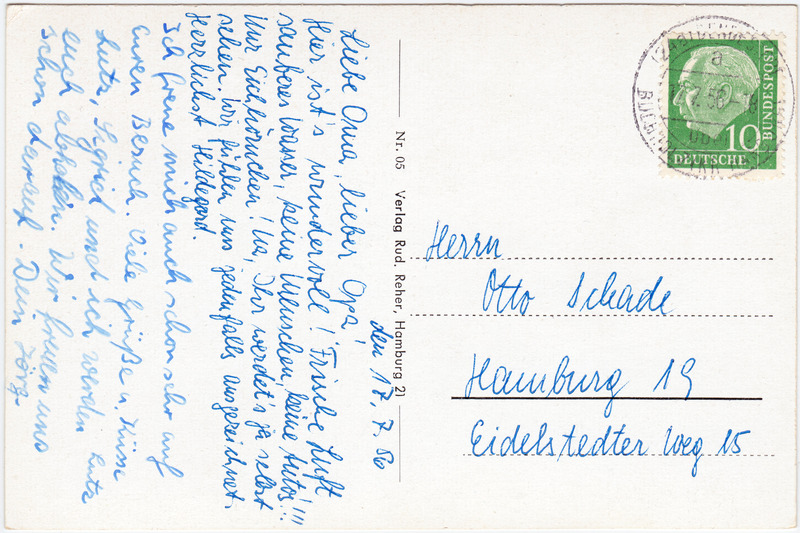 den 17. 7. 56
Liebe Oma, lieber Opa!
Hier ist's wundervoll! Frische Luft
sauberes Wasser, keine Menschen, keine Autos!!!
Nur Eichhörnchen! Na, Ihr werdet's ja selbst
sehen. Wir fühlen uns jedenfalls ausgezeichnet.
Herzlichst Hildegard.
Ich freue mich auch schon sehr auf
Euren Besuch. Viele Grüße u. Küsse
Lutz, Sigrid und ich werden
euch abholen. Wir freuen uns
schon darauf. Dein Jörg
Nr. 05 Verlag Rud. Reher, Hamburg 21
BUNDESPOST
10
DEUTSCHE
a
Herrn
Otto Schade
Hamburg 19
Eidelstedter Weg 15